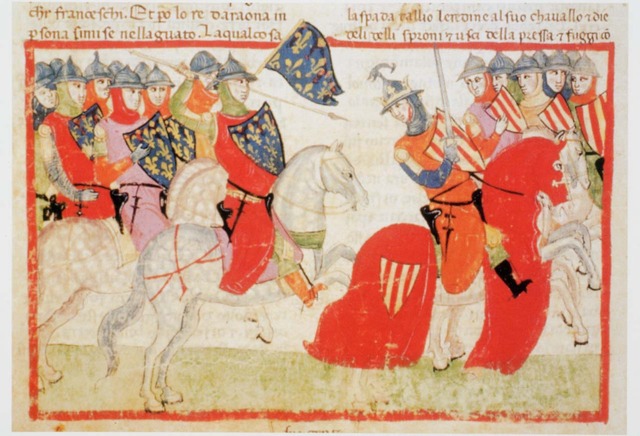 franceschi. Et po lo re daraona in
psona simise nellaguato. Laqualcosa
laspada tallio leredine alsuo chavallo ⁊ die
delli sproni ⁊ usci della pressa ⁊ fuggi cō